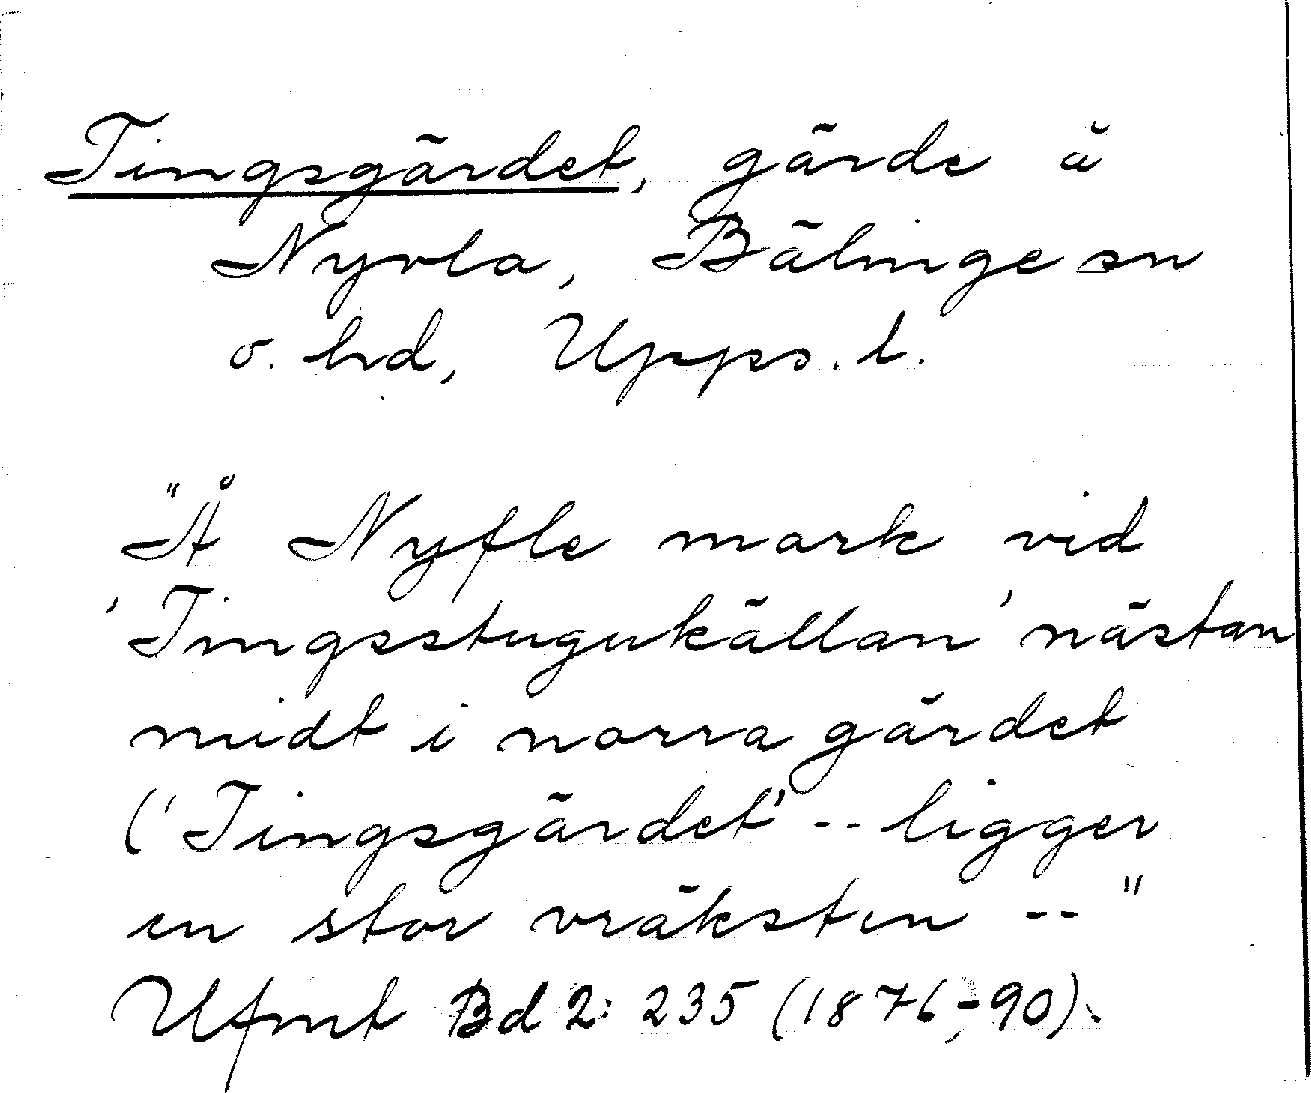 Tingsgärdet, gärde å
Nyvla, Bälinge sn
o. hd, Upps. l.
"Å Nyfle mark vid
'Tingsstugukällan' nästan
midt i norra gärdet
('Tingsgärdet' -- ligger
en stor vräksten -- "
Ufmt Bd 2: 235 (1876-90).